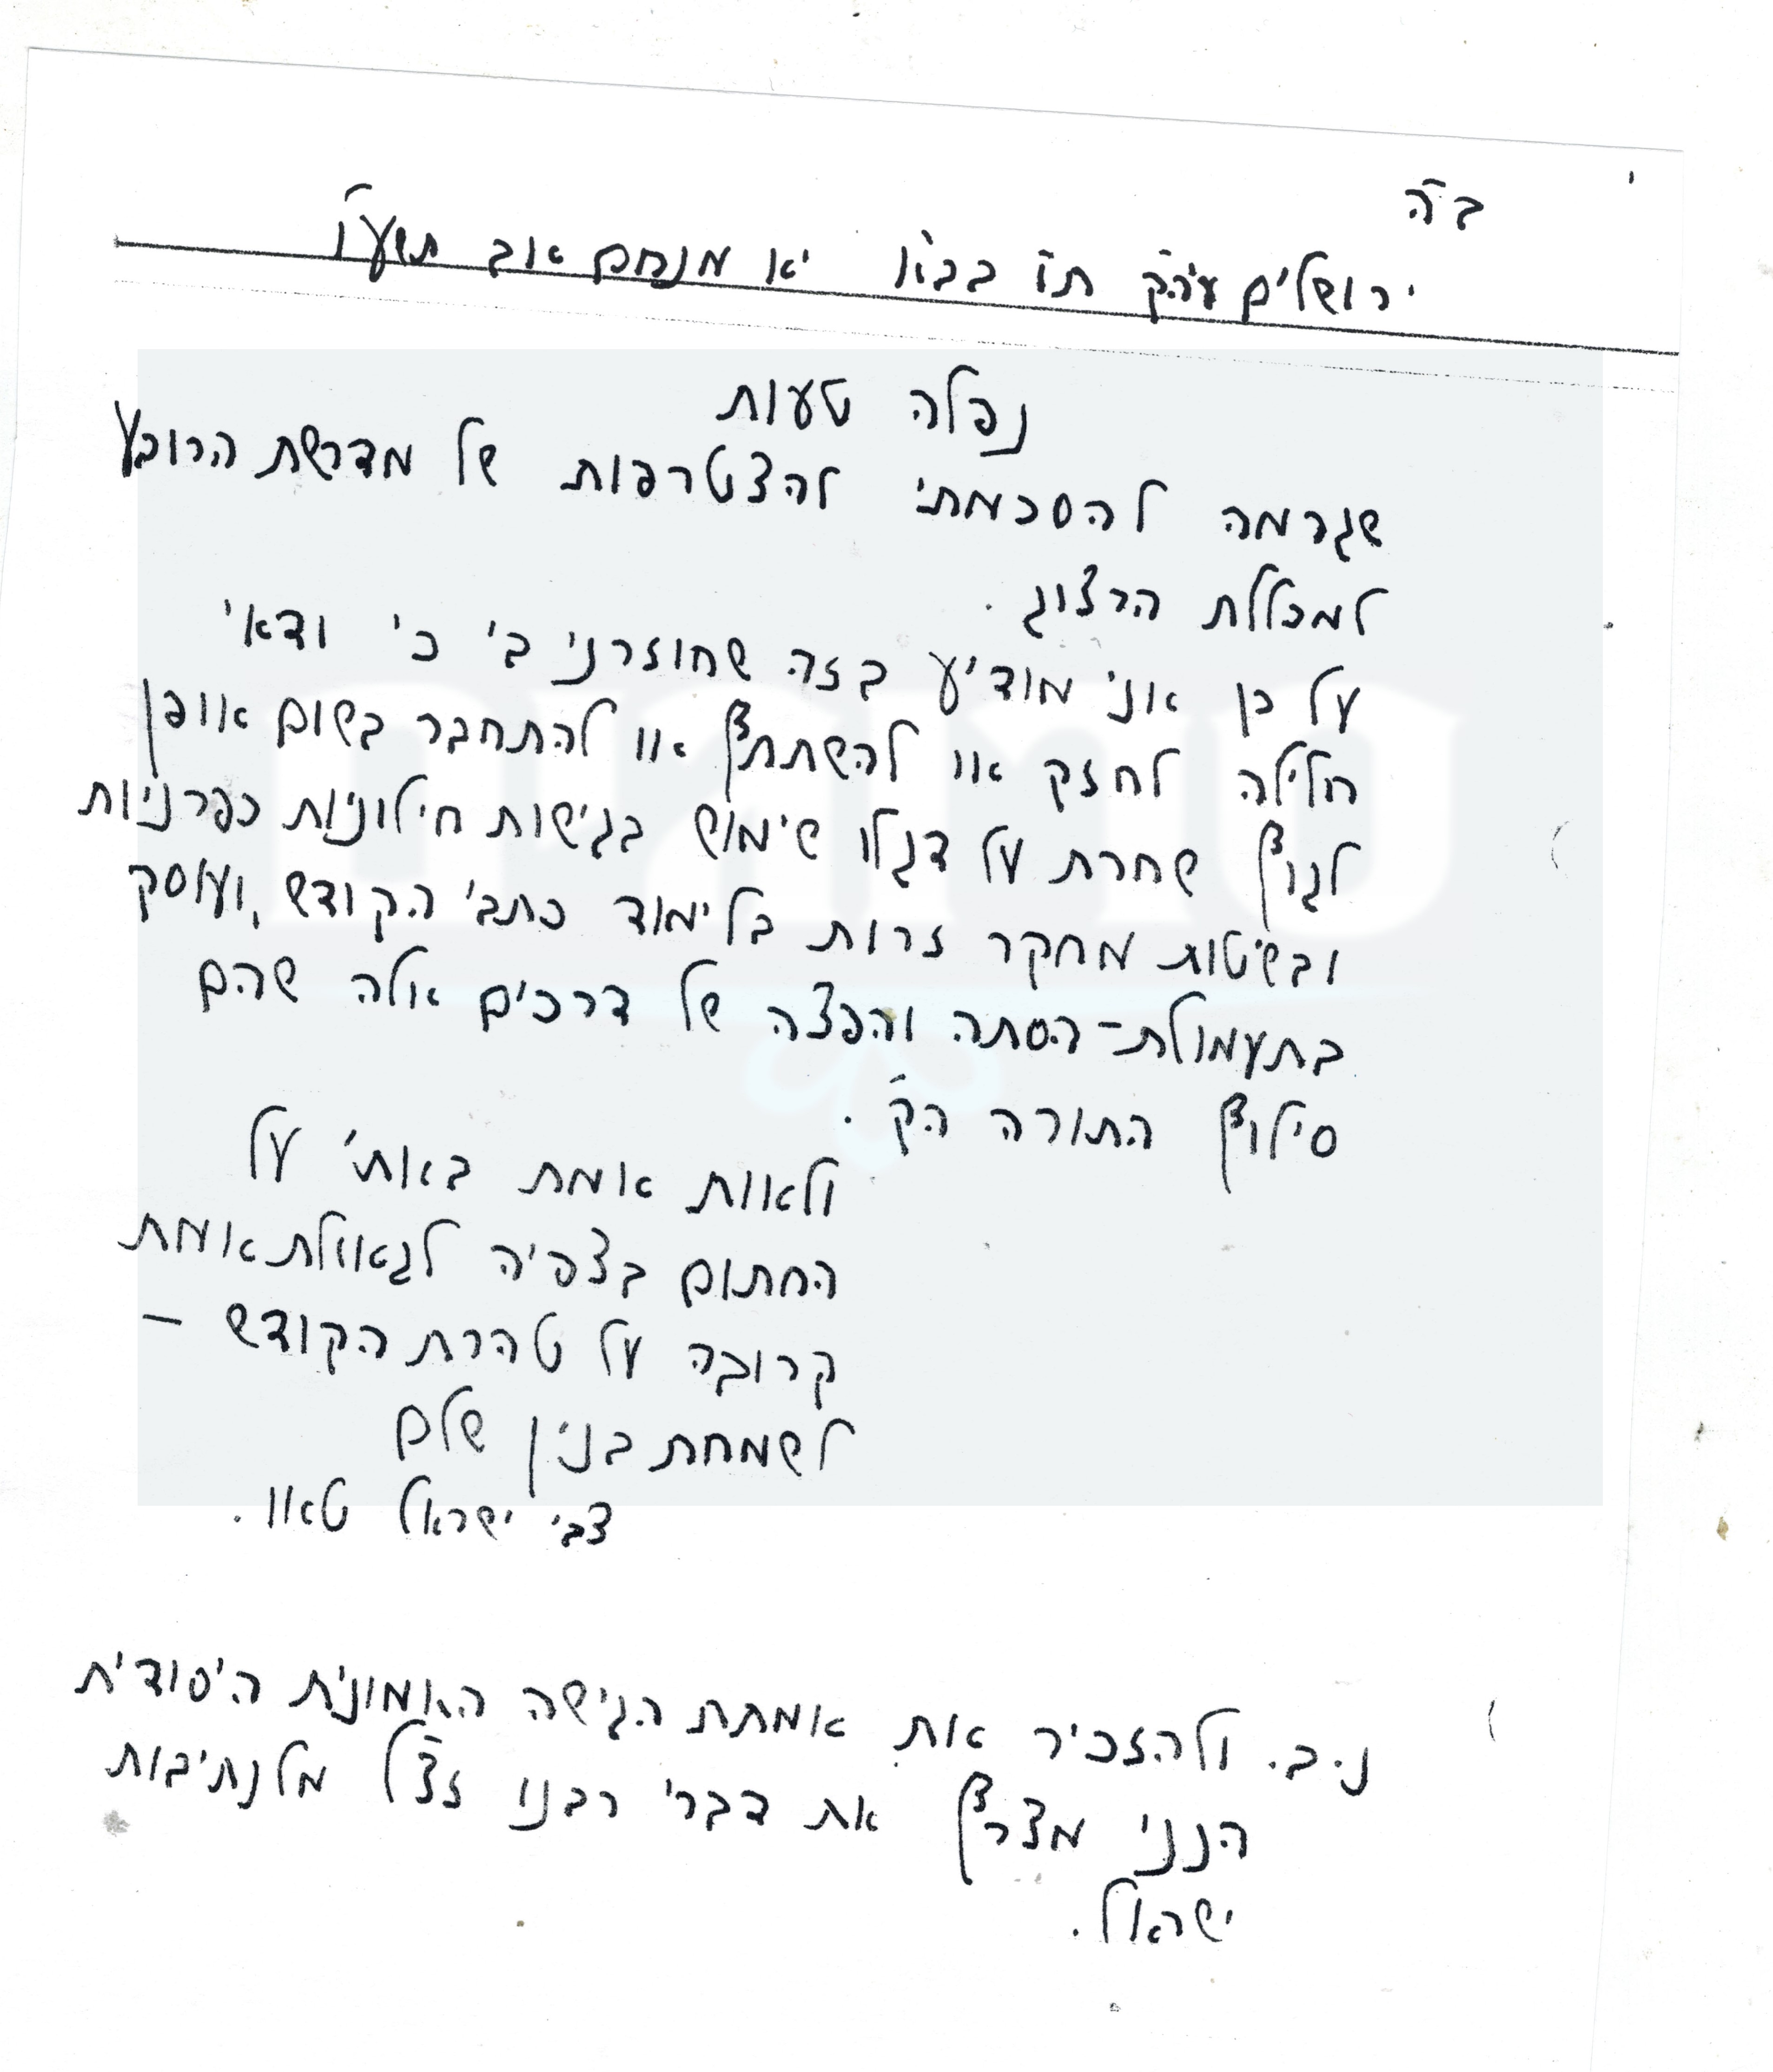 ב"ה
ירושלים עיה"ק ת"ו בבי"א י"א מנחם אב תשע"ו
נפלה טעות
שגרמה להסכמתי להצטרפות של מדרשת הרובע
למכללת הרצוג.
על כן אני מודיע בזה שחוזרני בי כי ודאי
חלילה לחזק או להשתתף או להתחבר בשום אופן
לגוף שחרת על דגלו שימוש בגישות חילוניות כפרניות
ובשיטות מחקר זרות בלימוד כתבי הקודש, ועוסק
בתעמולת-הסתה והפצה של דרכים אלה שהם
סילוף התורה הק'.
ולאות אמת באתי על
החתום בצפיה לגאולת אמת
קרובה על טהרת הקודש –
לשמחת בנין שלם
צבי ישראל טאו.
נ.ב. ולהזכיר את אמתת הגישה האמונית היסודית
הנני מצרף את דברי רבנו זצ"ל מלנתיבות
ישראל.
סרוגים